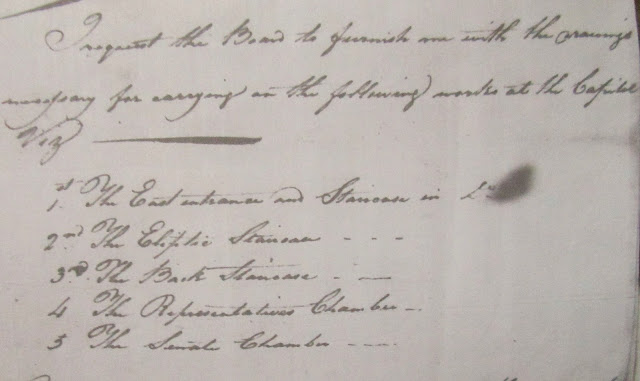 I request the Board to furnish me with the drawings
necessary for carrying on the following works at the Capitol
Viz
1st The East entrance and Staircase in
2nd The Eliptic Staircase - - -
3rd The Back Staircase - —
4 The Representatives Chamber -.
5 The Senate Chamber - - - -